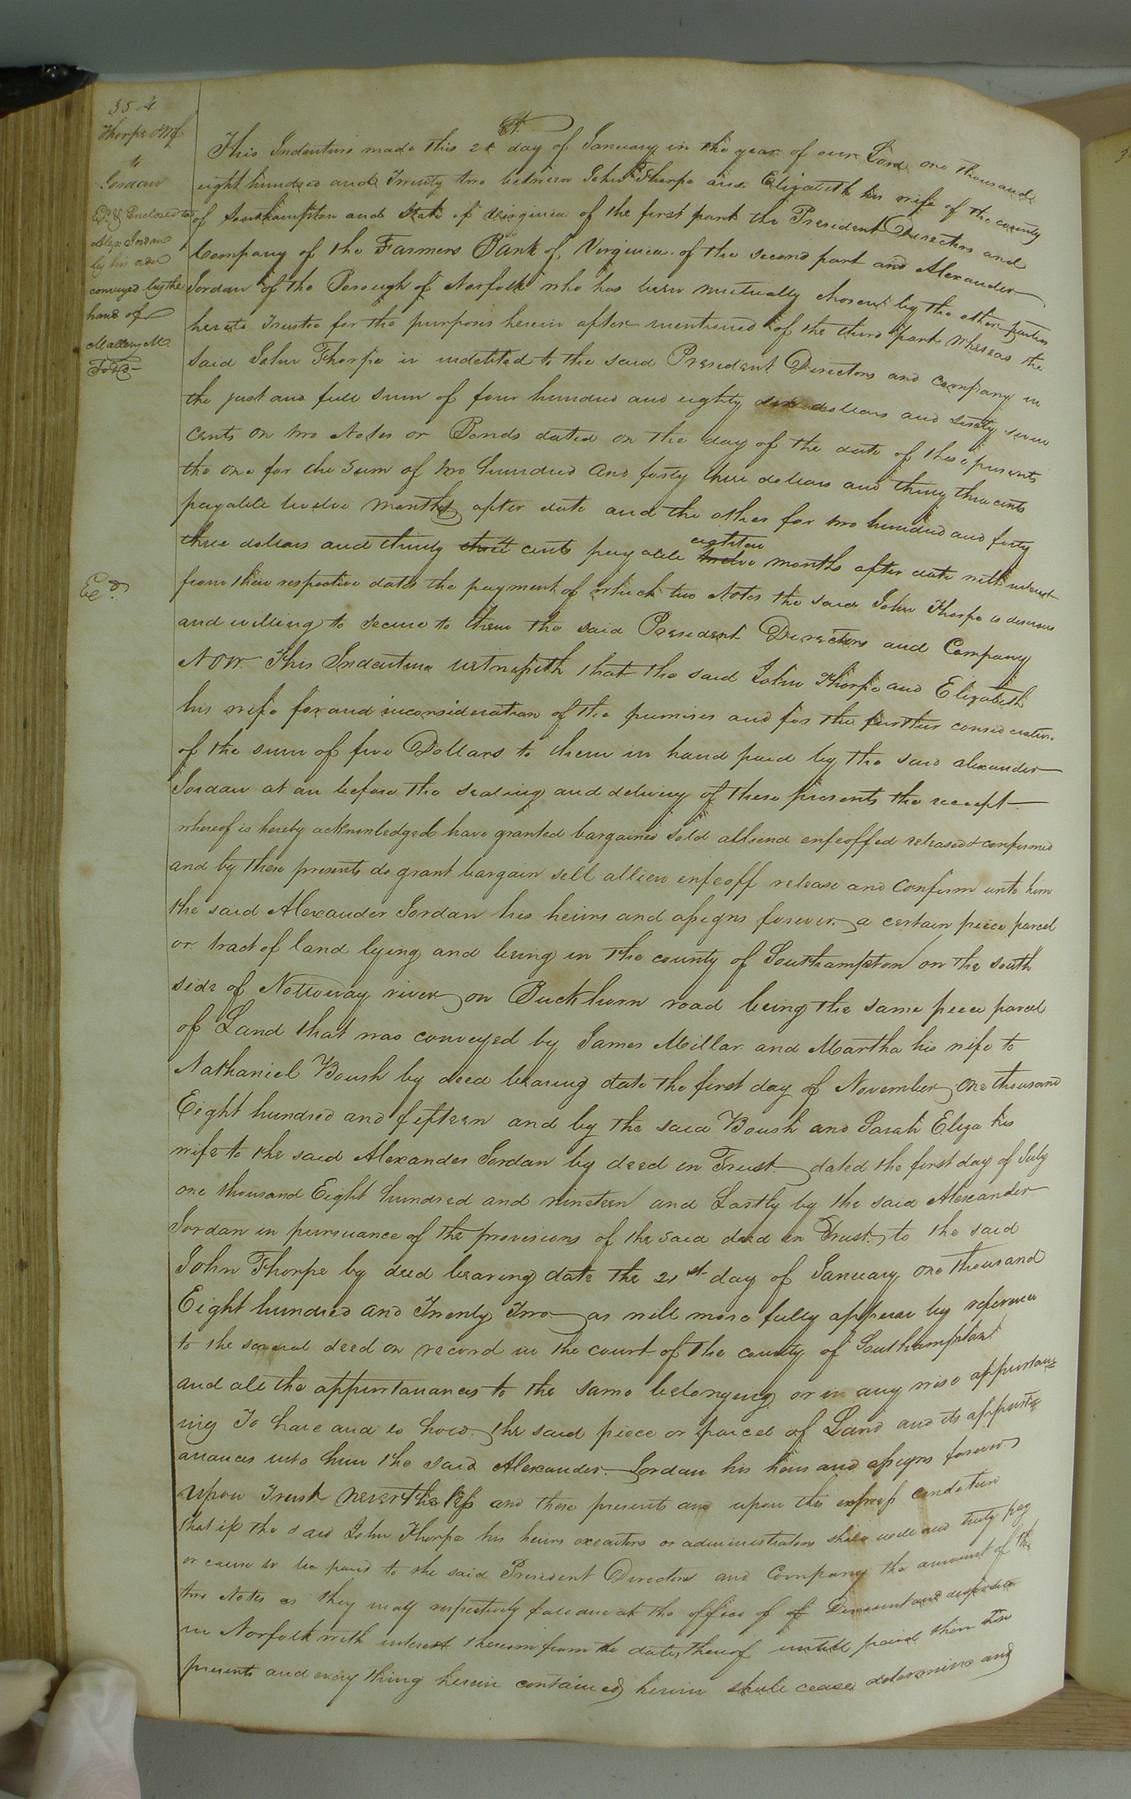 354
Thorpe & Wf
to
Jordan
Ex.d & Enclosed to
Alex Jordan
by his order
conveyed by the
hand of
Mallory M.
Todd
Ex.d
This Indenture made this 21st day of January in the year of our Lord one thousand
eight hundred and Twenty two between John Thorpe and Elizabeth his wife of the county
of Southampton and State of Virginia of the first part the President Directors and
Company of the Farmers Bank of Virginia of the second part and Alexander
Jordan of the Borough of Norfolk who has been mutually chosen by the other parties
hereto Trustee for the purposes herein after mentioned of the third part Whereas the
said John Thorpe is indebted to the said President Directors and company in
the just and full sum of four hundred and eighty six dollars and sixty seven
cents on two Notes or Bonds dated on the day of the date of these presents
the one for the sum of two hundred and forty three dollars and thirty three cents
payable twelve months after date and the other for two hundred and forty
three dollars and thirty cents payable eighteen twelve months after date with interest
from their respective dates the payment of which two Notes the said John Thorpe is desirous
and willing to secure to them the said President Directors and Company
Now This Indenture witnesseth that the said John Thorpe and Elizabeth
his wife for and inconsideration of the premises and for the further consideration
of the sum of five Dollars to them in hand paid by the said alexander
Jordan at an before the sealing and delivery of these presents the receept
whereof is hereby acknowledged have granted bargained sold alliend enfeoffed released & confirmed
and by these presents do grant bargain sell allien enfeoff release and Confirm unto him
the said Alexander Jordan his heirs and assigns forever a certain piece parcel
or tract of land lying and being in the county of Southampton on the south
side of Nottoway river on Buckhorn road being the same piece parcel
of Land that was conveyed by James Millar and Martha his wife to
Nathaniel Boush by deed bearing date the first day of November one thousand
Eight hundred and fifteen and by the said Boush and Sarah Eliza his
wife to the said Alexander Jordan by deed in Trust dated the first day of July
one thousand Eight hundred and nineteen and Lastly by the said Alexander
Jordan in pursuance of the provisions of the said deed in Trust to the said
John Thorpe by deed bearing date the 21st day of January one thousand
Eight hundred and Twenty Two as will more fully appear by reference
to the several deed on record in the court of the county of Southampton
and all the appurtanances to the same belonging or in any wise appurtan=
ing To have and to hold the said piece or parcel of Land and its appurte=
anances unto him the said Alexander Jordan his heirs and assigns forever
Upon Trust nevertheless and these presents are upon this express condition
that if the said John Thorpe his heirs executors or administrators shall well and truly pay
or cause to be paid to the said President Directors and Company the amount of the
two Notes as they may respectively fall due at the office of of Discount and deposite
in Norfolk with interest thereon from the dates thereof untill paid then these
presents and every thing herein contained herein shall cease determine and